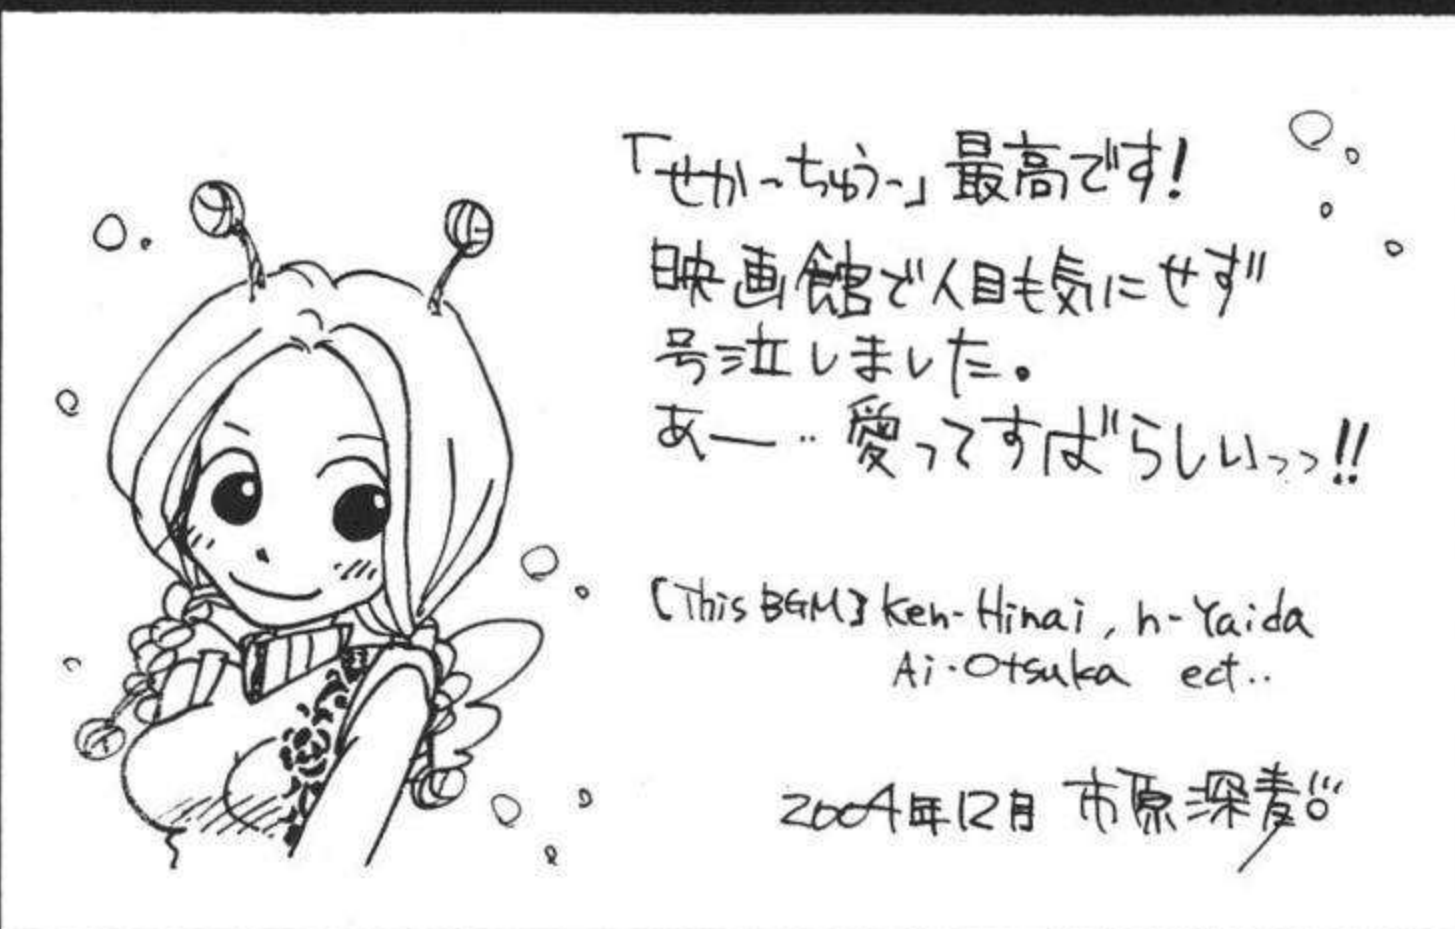 「せかーちゅうー」最高です!
映画館で人目も気にせず
号泣しました。
あー‥愛ってすばらしいっっ!!
[This BGM] Ken-Hirai, h-Yaida
Ai・Otsuka ect..
2004年12月 市原深青